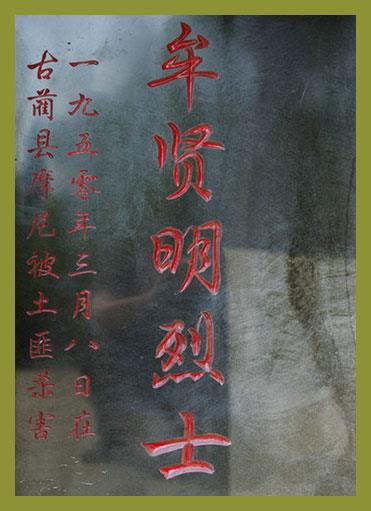 牟贤明烈士
一九五零年三月八日在
古蔺县摩尼被土匪杀害